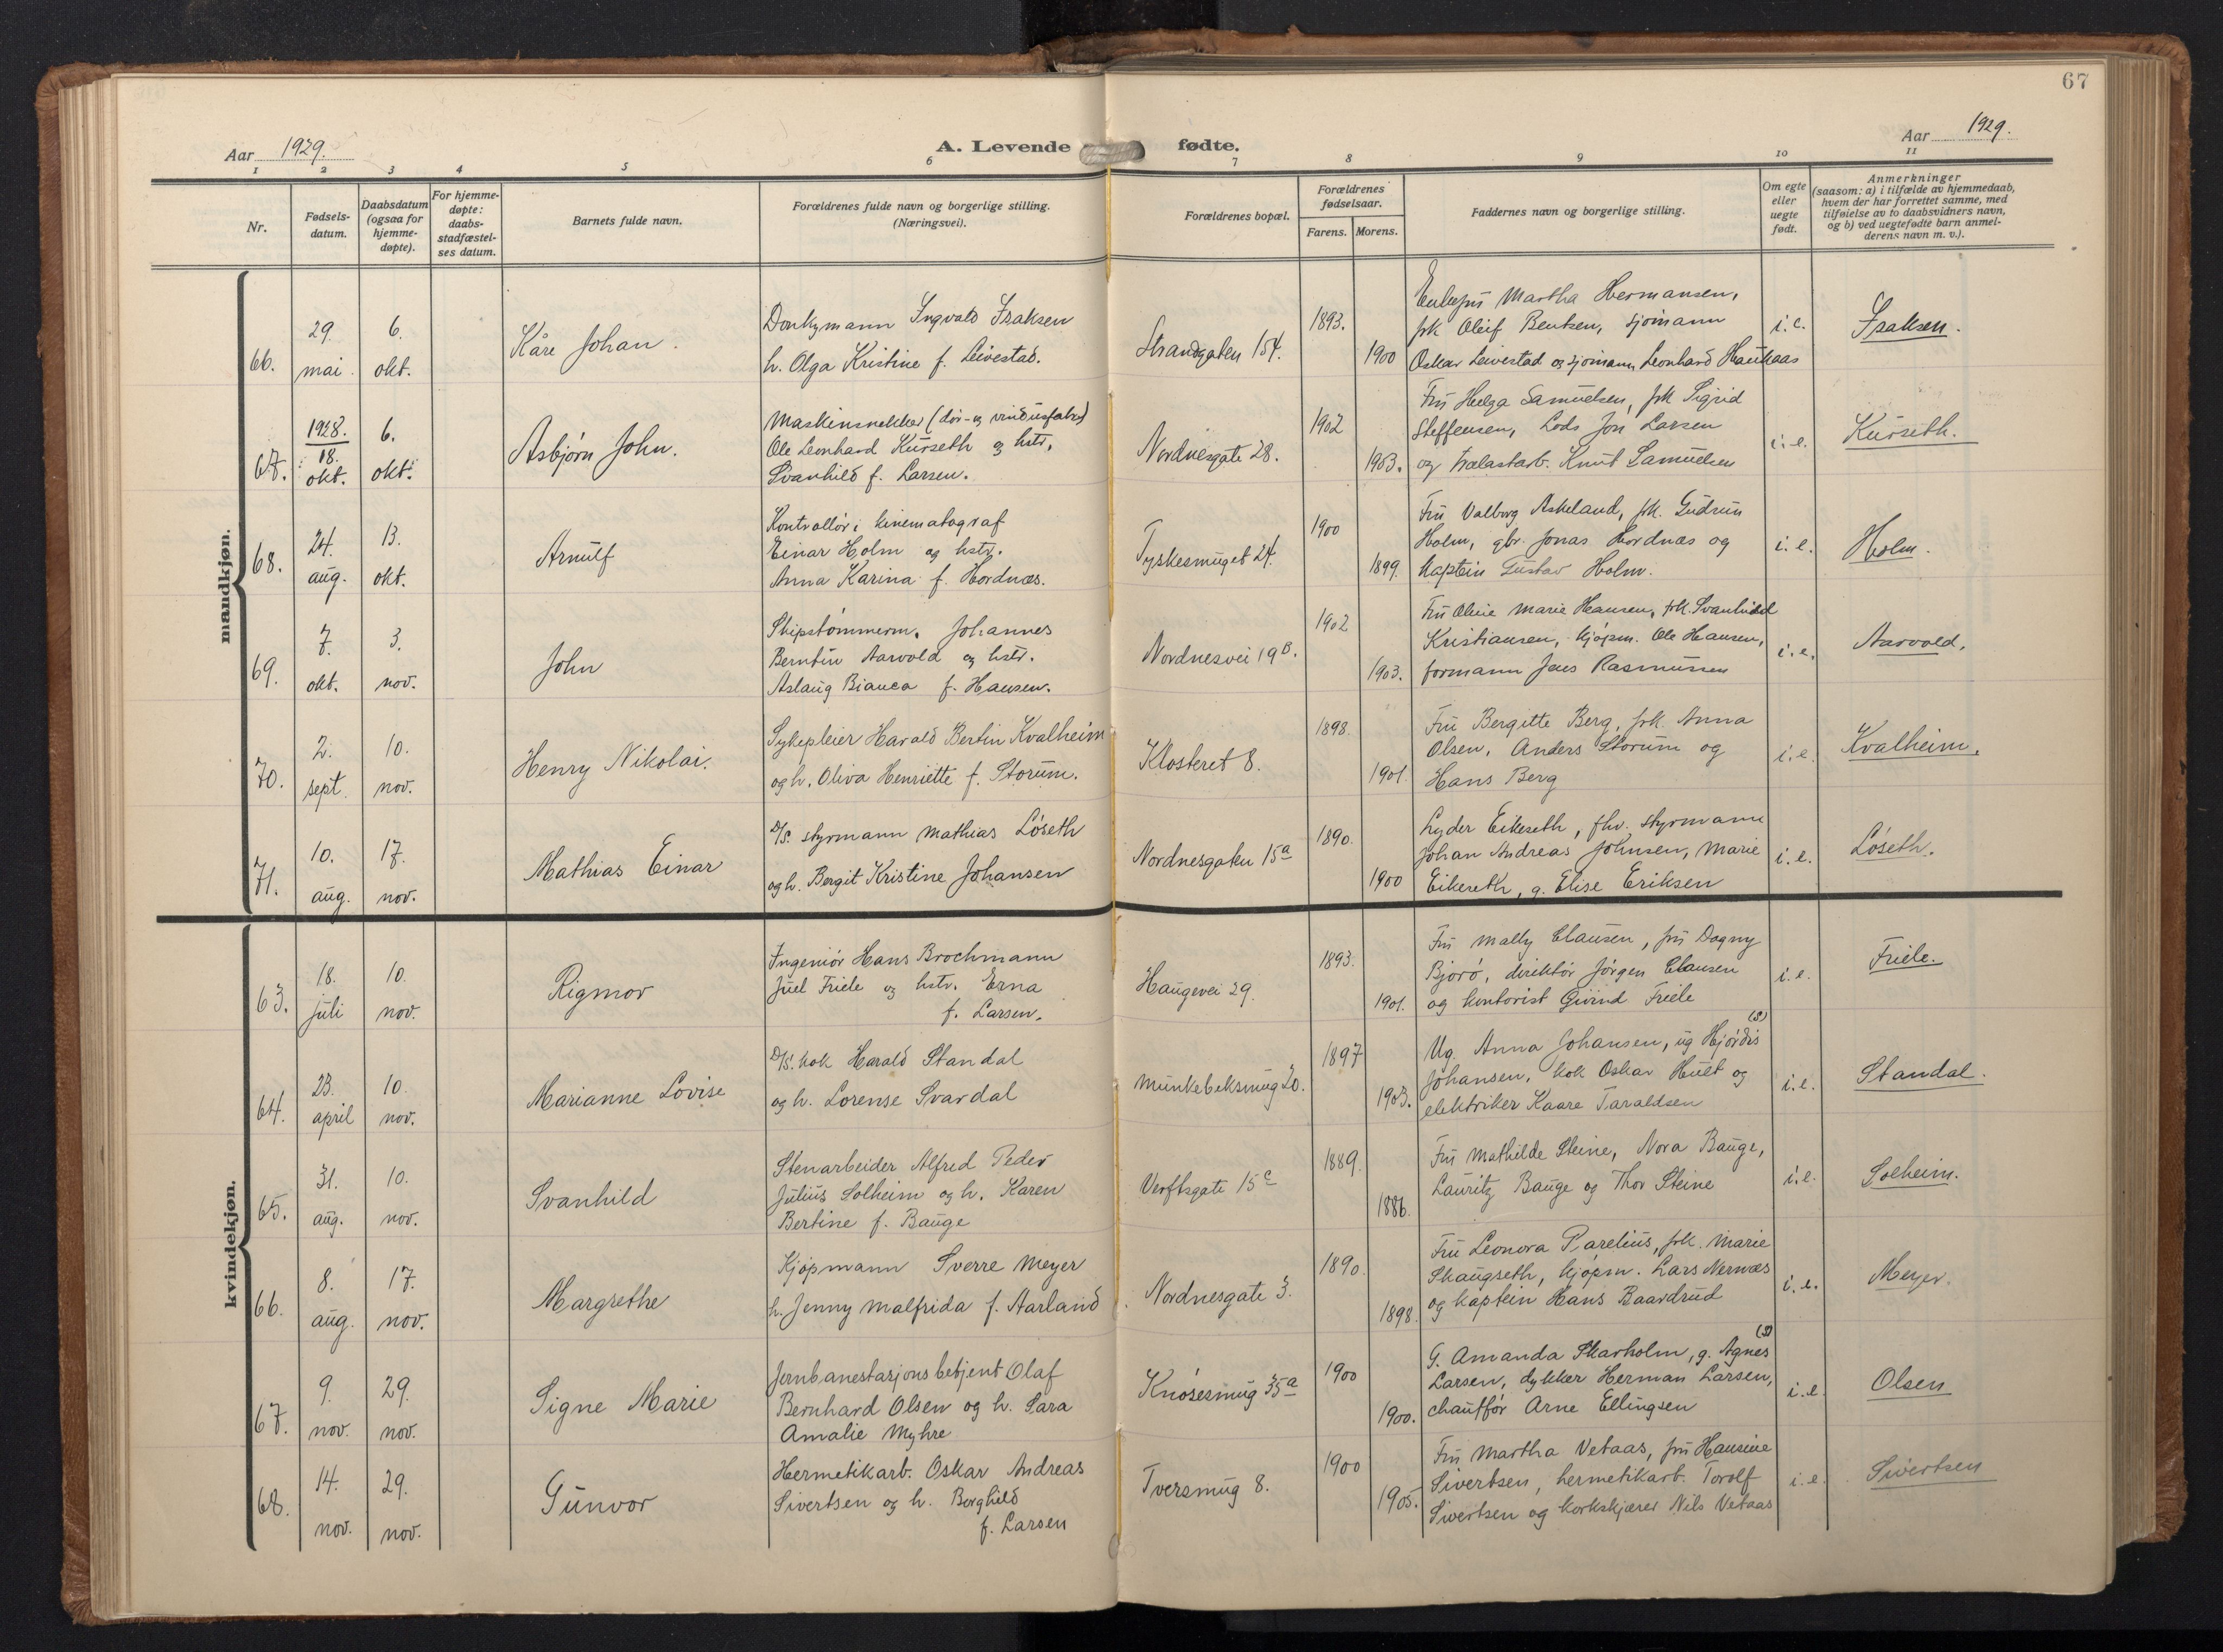 67
Aar 1929.
A. Levende fødte.
Aar 1929.
1 2 3 4 5 6 7 8 9 10 11
Nr.
Fødsels-
datum.
Daabsdatum
(ogsaa for
hjemme-
døpte).
For hjemme-
døpte:
daabs-
stadfæstel-
ses datum.
Barnets fulde navn.
Forældrenes fulde navn og borgerlige stilling.
(Næringsvei).
Forældrenes bopæl.
Forældrenes
fødselsaar.
Farens. Morens.
Faddernes navn og borgerlige stilling.
Om egte
eller
uegte
født.
Anmerkninger
(saasom: a) i tilfælde av hjemmedaab,
hvem der har forrettet samme, med
tilføielse av to daabsvidners navn,
og b) ved uegtefødte barn anmel-
derens navn m. v.).
mandkjøn.
66.
29.
mai
6.
okt.
Kåre Johan.
Donkymann Ingvald Isaksen
h. Olga Kristine f. Leivestad.
Strandgaten 154.
1893.
1900
Martha Hermansen,
frk Bentsen, sjømann
Oskar Leivestad og sjømann Leonhard Haukaas
i.e.
Isaksen.
67.
1928.
18.
okt.
6.
okt.
Asbjørn John.
Maskinsnekker (dør- og vindusfabr)
Ole Leonhard Kurseth og hstr.
Svanhild f. Larsen.
Nordnesgate 28.
1902
1903.
Fru Helga Samuelsen, frk Sigrid
Steffensen, Lods Jon Larsen
og Knut Samuelsen
i.e.
Kurseth.
68.
24.
aug.
13.
okt.
Arnulf
Kontrollør i kinematograf
Einar Holm og hstr.
Anna Karina f. Hordnæs.
Tyskesmuget 24.
1900
1899.
Fru Valborg Askeland, frk. Gudrun
Holm, gbr. Jonas Hordnæs og
kaptein Gustav Holm.
i.e.
Holm.
69.
7.
okt.
3.
nov.
John
Skipstømmerm. Johannes
Berntin Aarvold og hstr.
Aslaug Bianca f. Hansen.
Nordnesvei 19 B.
1902
1903.
Fru Marie Hansen, frk. Svanhild
Kristiansen, kjøpm. Ole Hansen,
formann Jens Rasmussen
i.e.
Aarvold.
70.
2.
sept.
10.
nov.
Henry Nikolai.
Sykepleier Harald Bertin Kvalheim
og h. Oliva Henriette f. Storum.
Klosteret 8.
1898.
1901.
Fru Bergitte Berg, frk. Anna
Olsen, Anders Storum og
Hans Berg
i.e.
Kvalheim.
71.
10.
aug.
17.
nov.
Mathias Einar
D/S. styrmann Mathias Løseth
og h. Bergit Kristine Johansen
Nordnesgaten 15a
1890.
1900
Lyder Eikeseth, fhv. styrmann
Johan Andreas Johnsen, Marie
Eikeseth, g. Elise Eriksen
i.e.
Løseth.
kvindekjøn.
63.
18.
juli
10.
nov.
Rigmor
Ingeniør Hans Brochmann
Juel Friele og hstr. Erna
f. Larsen.
Haugevei 29.
1893.
1901.
Fru Mally Clausen, fru Dagny
Bjorø, direktør Jørgen Clausen
og kontorist Friele
i.e.
Friele.
64.
23.
april
10.
nov.
Marianne Lovise
D/S. kok Harald Standal
og h. Lorense Svardal
Munkebeksmug 20.
1897
1903.
Ug. Anna Johansen, ug Hjørdis (s)
Johansen, kok Oskar Hult og
elektriker Kaare Taraldsen
i.e.
Standal.
65.
31.
aug.
10.
nov.
Svanhild
Stenarbeider Alfred Peder
Julius Solheim og h. Karen
Bertine f. Bauge
Verftsgate 15c
1889.
1886.
Fru Mathilde Steine, Nora Bauge,
Lauritz Bauge og Thor Steine
i.e.
Solheim.
66.
8.
aug.
17.
nov.
Margrethe
Kjøpmann Sverre Meyer
h. Jenny Malfrida f. Aarland
Nordnesgate 3.
1890.
1898.
Fru Leonora Parelius, frk. Marie
Skaugseth, kjøpm. Lars Nernæs
og kaptein Hans Baardrud
i.e.
Meyer.
67.
9.
nov.
29.
nov.
Signe Marie
Jernbanestasjonsbetjent Olaf
Bernhard Olsen og h. Sara
Amalie Myhre
Knøsesmug 35a
1900
1900.
G. Amanda Skarholm, g. Agnes (s)
Larsen, dykker Herman Larsen,
chauffør Arne Ellingsen
i.e.
Olsen
68.
14.
nov.
29.
nov.
Gunvor
Hermetikarb. Oskar Andreas
Sivertsen og h. Borghild
f. Larsen
Tversmug 8.
1900
1905.
Fru Martha Vetaas, fru Hansine
Sivertsen, hermetikarb. Torolf
Sivertsen og korkskjærer Nils Vetaas
i.e.
Sivertsen